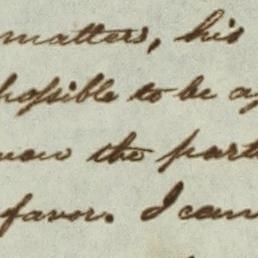 matters, his
possible to be
the part
favor. I can